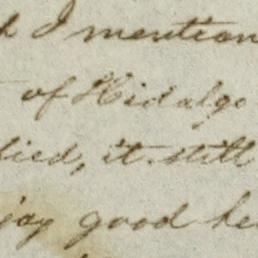 I mention
of Hidalgo
died, it still
good